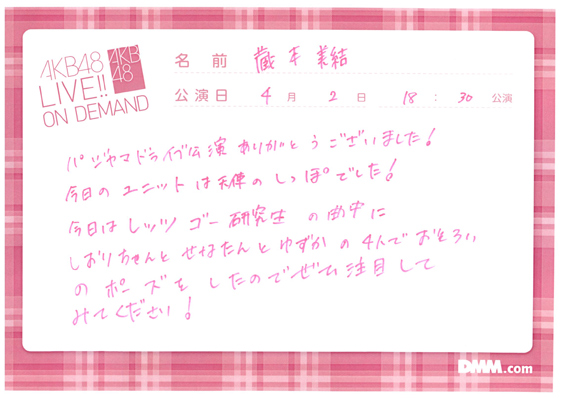 AKB48
LIVE!!
ON DEMAND
AKB
48
名前 蔵本美結
公演日 4月2日 18:30公演
パジャマドライブ公演ありがとうございました!
今日のユニットは天使のしっぽでした!
今日はレッツゴー研究生の曲中に
しおりちゃんとせなたんとゆずかの4人でおそろい
のポーズをしたのでぜひ注目して
みてください!
DMM.com